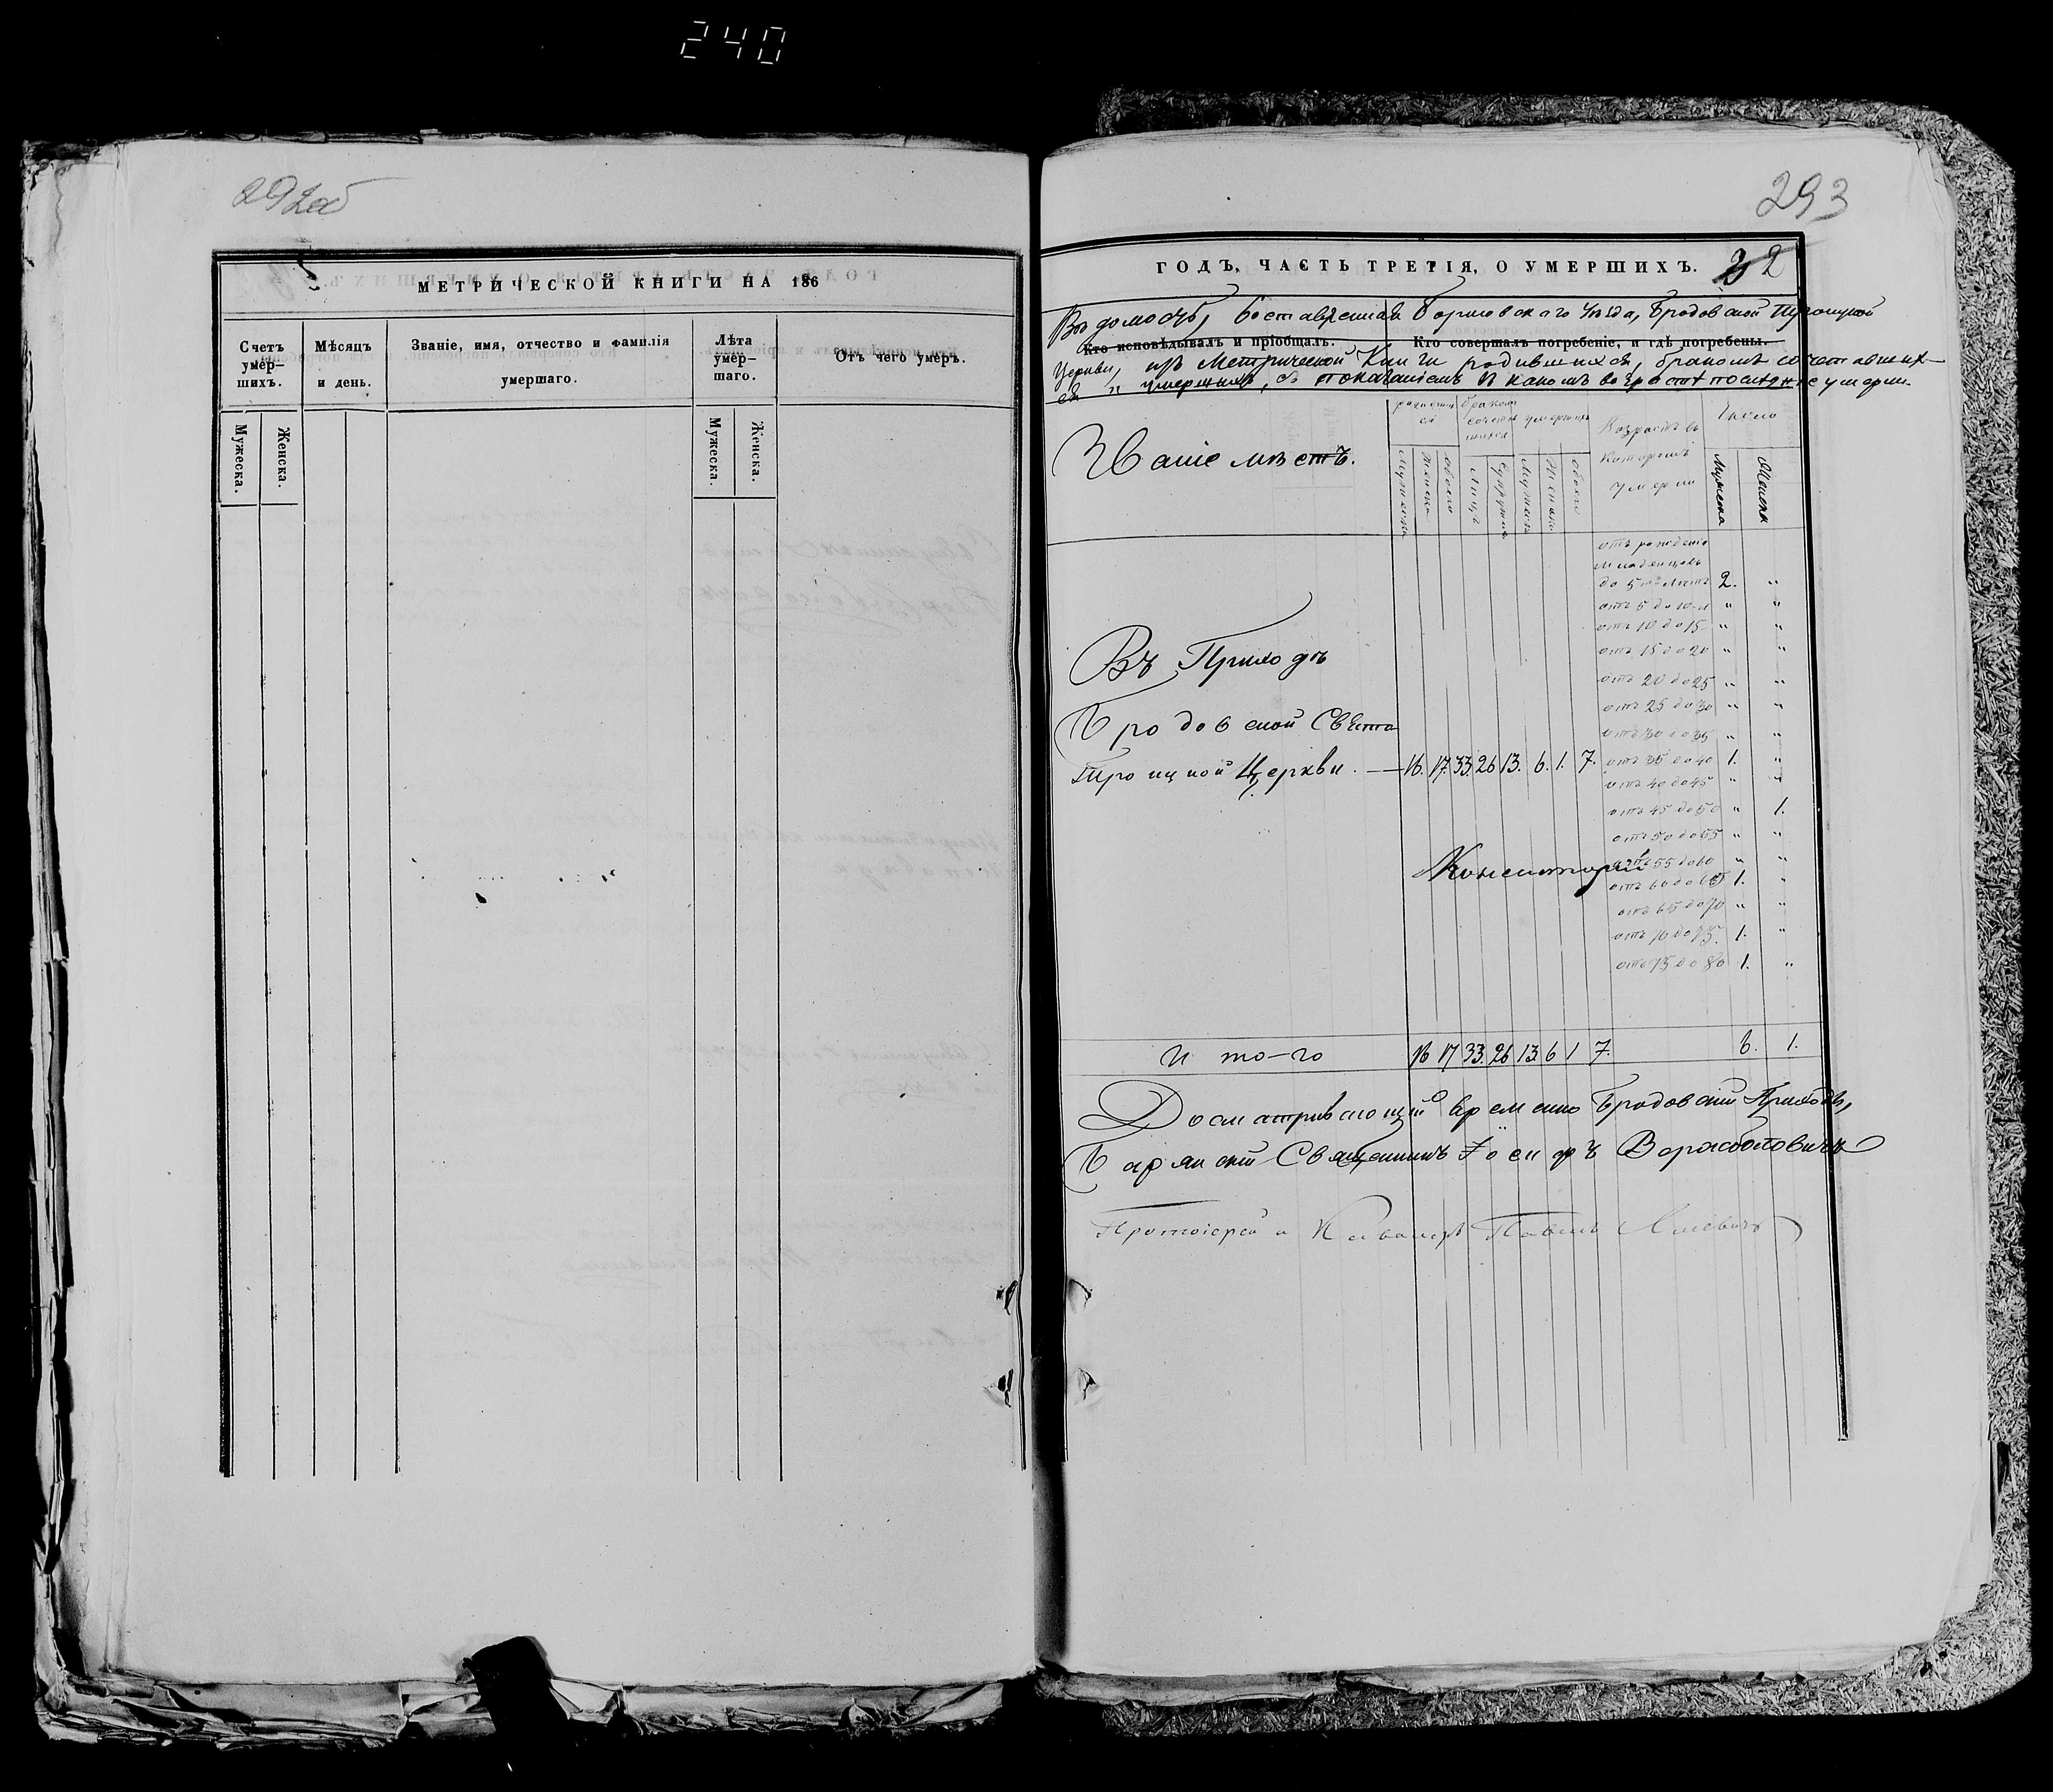 240
292об
МЕТРИЧЕСКОЙ КНИГИ НА 186
Счетъ умер-
шихъ.
Мѣсяцъ
и день.
Званіе, имя, отчество и фамилія
умершаго.
Лѣта
умер-
шаго.
Отъ чего умеръ.
Мужеска.
Женска.
Мужеска.
Женска.
293
ГОДЪ, ЧАСТЬ ТРЕТІЯ, О УМЕРШИХЪ. 32
Вѣдомость, составленная Борисовскаго Уѣзда, Бродовской Троицкой
Кто исповѣдывалъ и пріобщалъ.
Кто совершалъ погребеніе, и гдѣ погребены.
Церкви, изъ Метрической Книги родившихся, бракомъ сочетавших-
ся и умершихъ, съ показаніемъ въ какомъ возрастѣ послѣдніе умерли.
Званіе мѣстъ.
родивших
ся
бракомъ
сочетав
шихся
умершихъ
Возрастъ въ
которомъ
умерли
Число
Мужеска
Женска
Обоего
Лицъ
Супружествъ
Мужеска
Женска
Обоего
Мужеска
Женска
отъ рожденія
младенцевъ
до 5 лѣтъ 2. "
отъ 5 до 10 " "
отъ 10 до 15 " "
отъ 15 до 20 " "
отъ 20 до 25 " "
отъ 25 до 30 " "
отъ 30 до 35 " "
Въ Приходѣ
Бродовской Свято
Троицкой Церкви. — 16. 17. 33. 26 13. 6. 1. 7. отъ 35 до 40 1. "
отъ 40 до 45 " "
отъ 45 до 50 " 1.
отъ 50 до 55 " "
отъ 55 до 60 " "
Консисторіи
отъ 60 до 65 1. "
отъ 65 до 70 " "
отъ 70 до 75. 1. "
отъ 75 до 80 1. "
И то-го 16 17 33. 26 13. 6 1 7. 6. 1.
Досматривающій временно Бродовскій Приходъ,
Священникъ Іосифъ
Протоіерей и Кавалеръ Павелъ